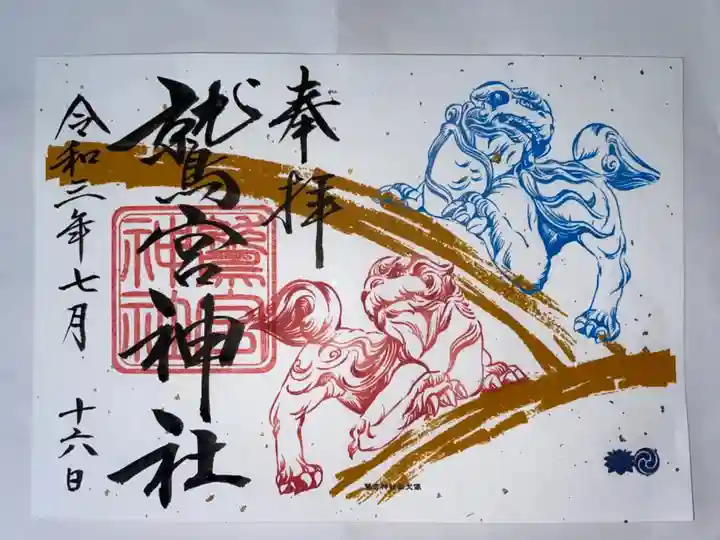 奉拝
鷲宮神社
鷲宮神社
令和二年七月
十六日